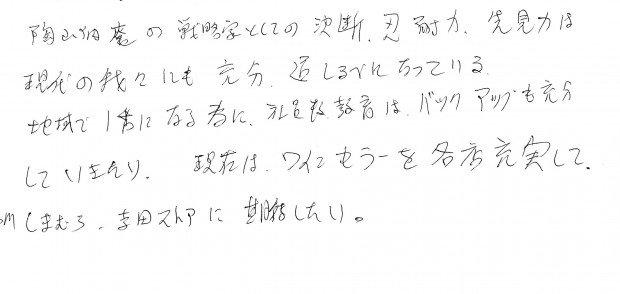 の戦略家としての決断、忍耐力、先見力は
現代の我々にも充分、道しるべになっている。
地域で1番になる為に、社員教育は、バックアップも充分
していきたい。現在は、ワインセラーを各店充実して、
しまむら、ストアに期待したい。